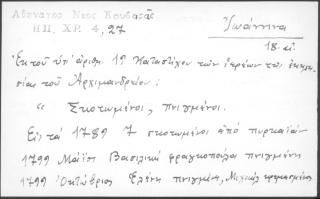 Αθανάγος Νεος Κουβαρᾶς
ΗΠ. ΧΡ. 4, 27
Ἰωάννινα
18. αἰ.
Ἐκ τοῦ ὑπ' ἀριθμ. 19 Κατάστιχον τῶν
σίας τοῦ Ἀρχιμανδρείου :
" Σκοτωμένοι, πνιγμένοι.
Εἰς τά 1789 7 σκοτωμένοι ἀπό πυρκαϊάν
1799 Μάϊος Βασιλική φραγκοπούλα πνιγμένη
1799 Ὀκτώβριος Ἑλένη πνιγμένη, Μιχαήλ